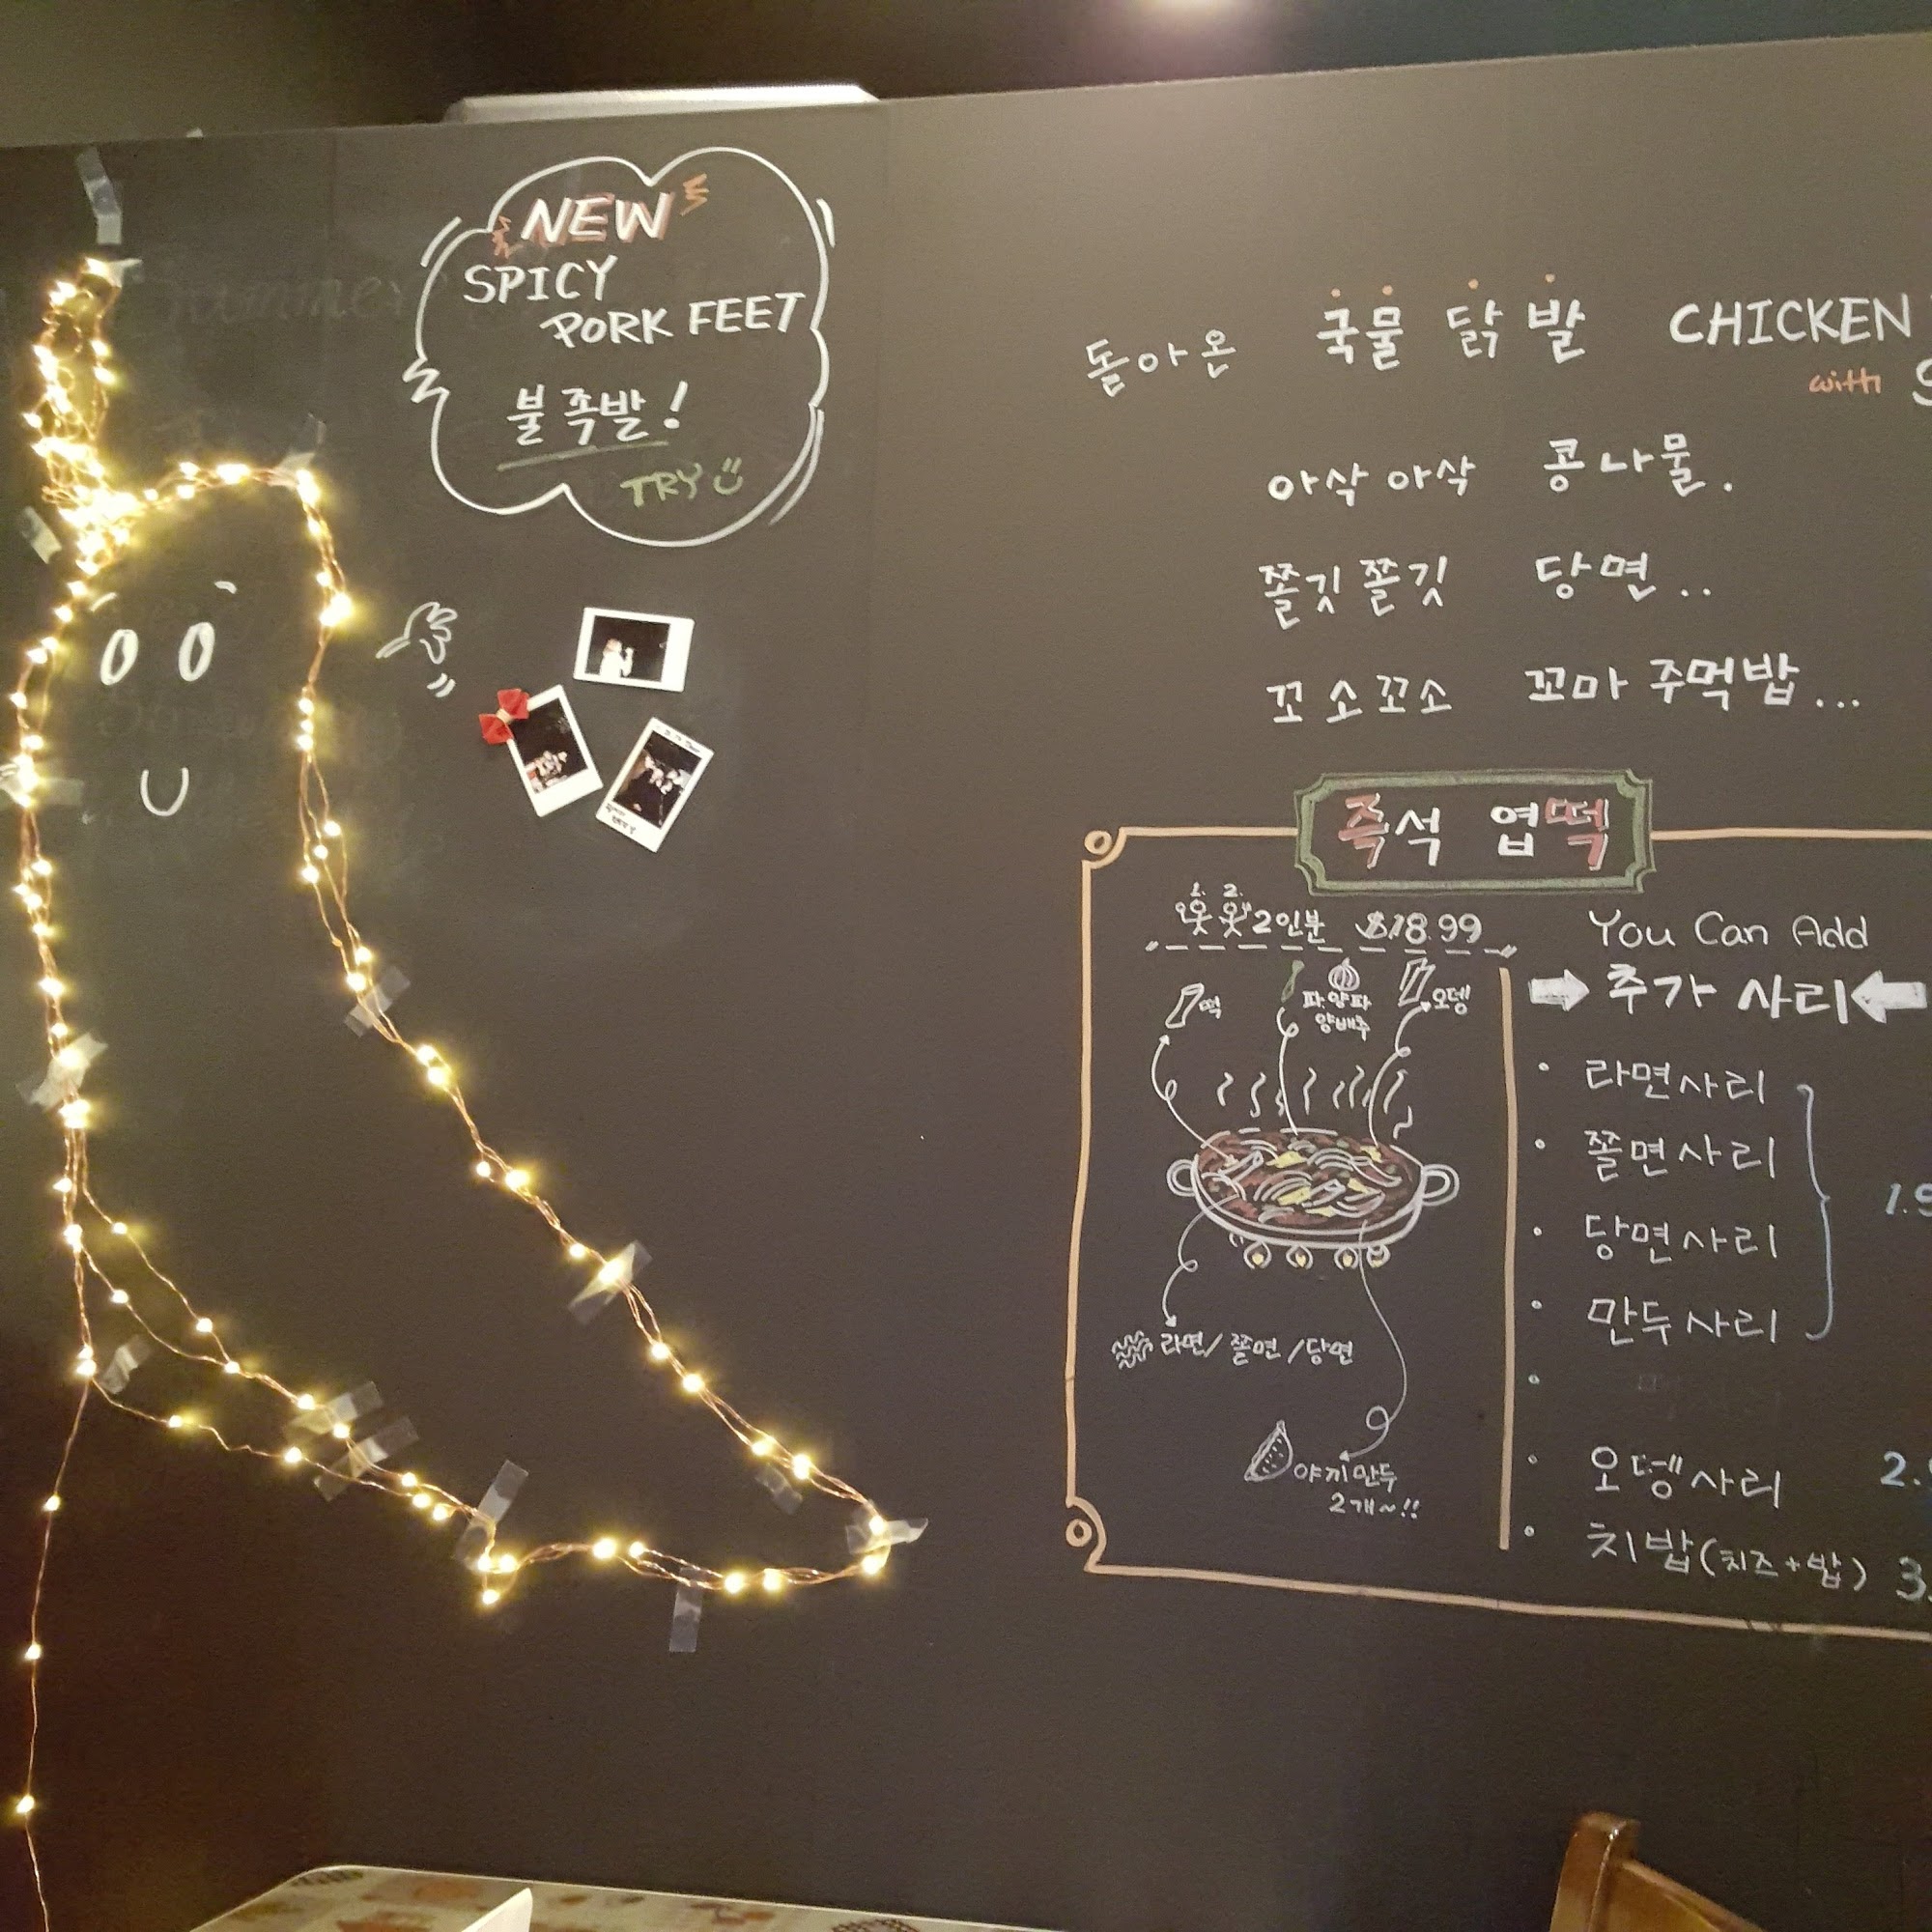 NEW
SPICY
PORK FEET
불족발!
TRY
돌아온 국물 닭발 CHICKEN
with
아삭아삭 콩나물.
쫄깃쫄깃 당면..
꼬소꼬소 꼬마 주먹밥...
즉석 엽떡
1. 2.
2인분 $18.99
떡
파.양파
양배추
오뎅
라면/쫄면/당면
야끼만두
2개~!!
You Can Add
추가 사리
• 라면사리
• 쫄면사리
• 당면사리
• 만두사리
• 오뎅사리
• 치밥(치즈+밥)